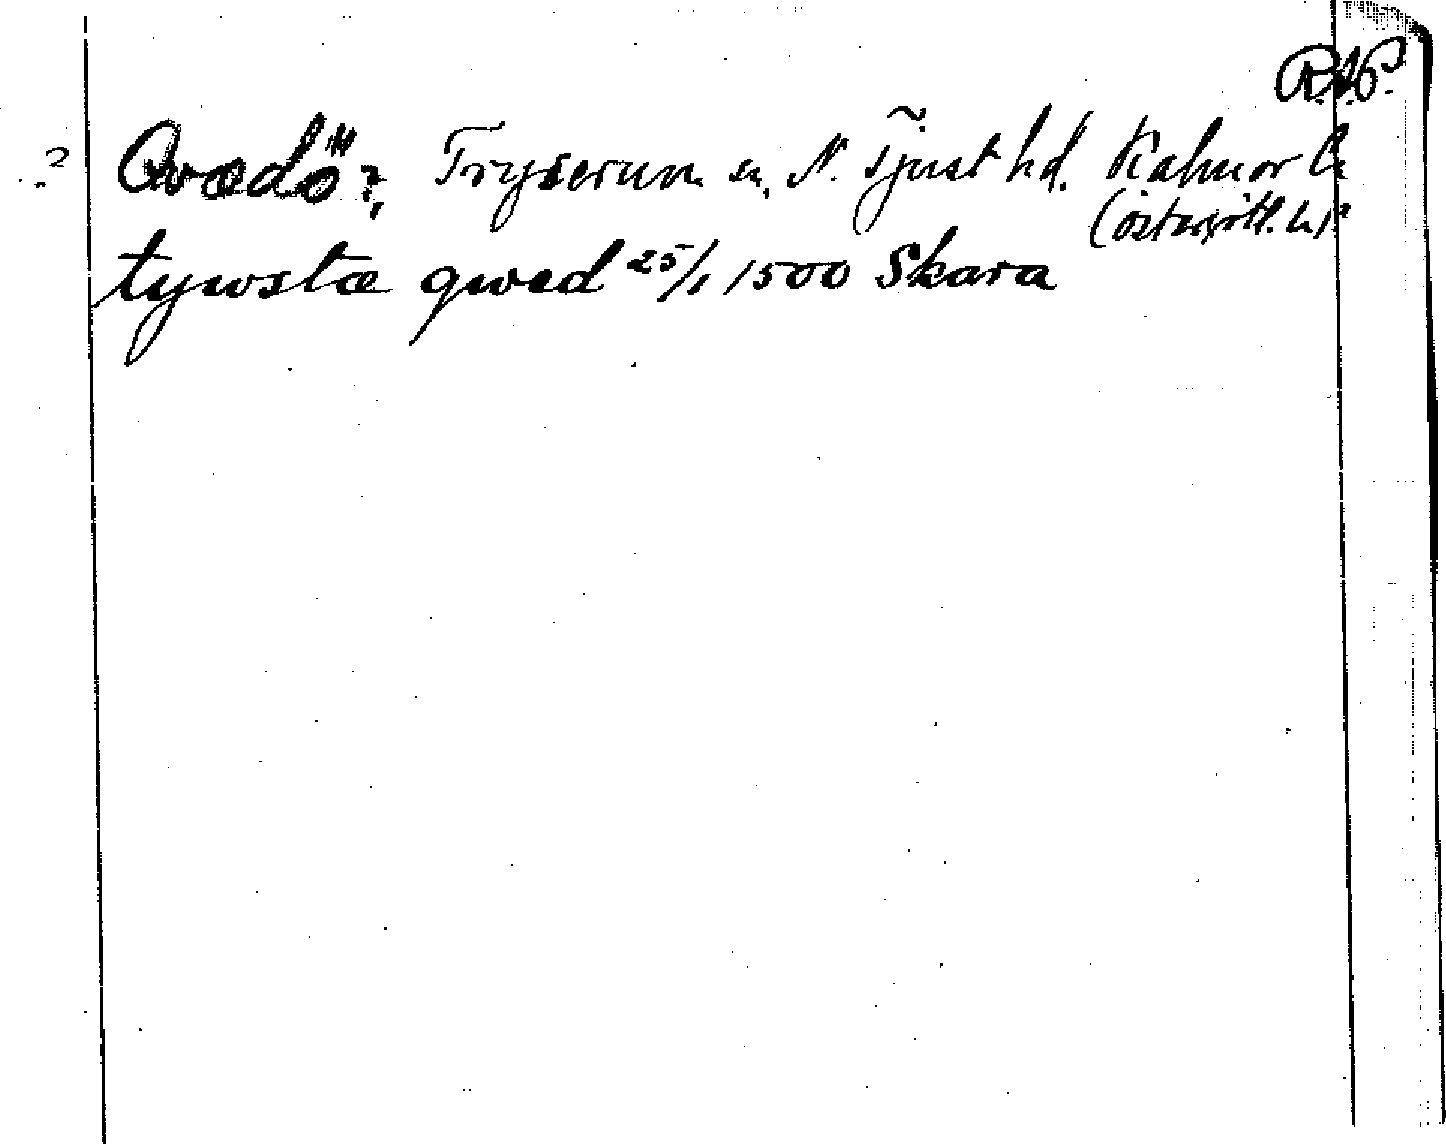 R.A.P.
? Qvædö?, Tryserum sn, N. Tjust hd. Kalmar l.
(Östergötl. l.)?
tywstæ qwæd 25/1 1500 Skara